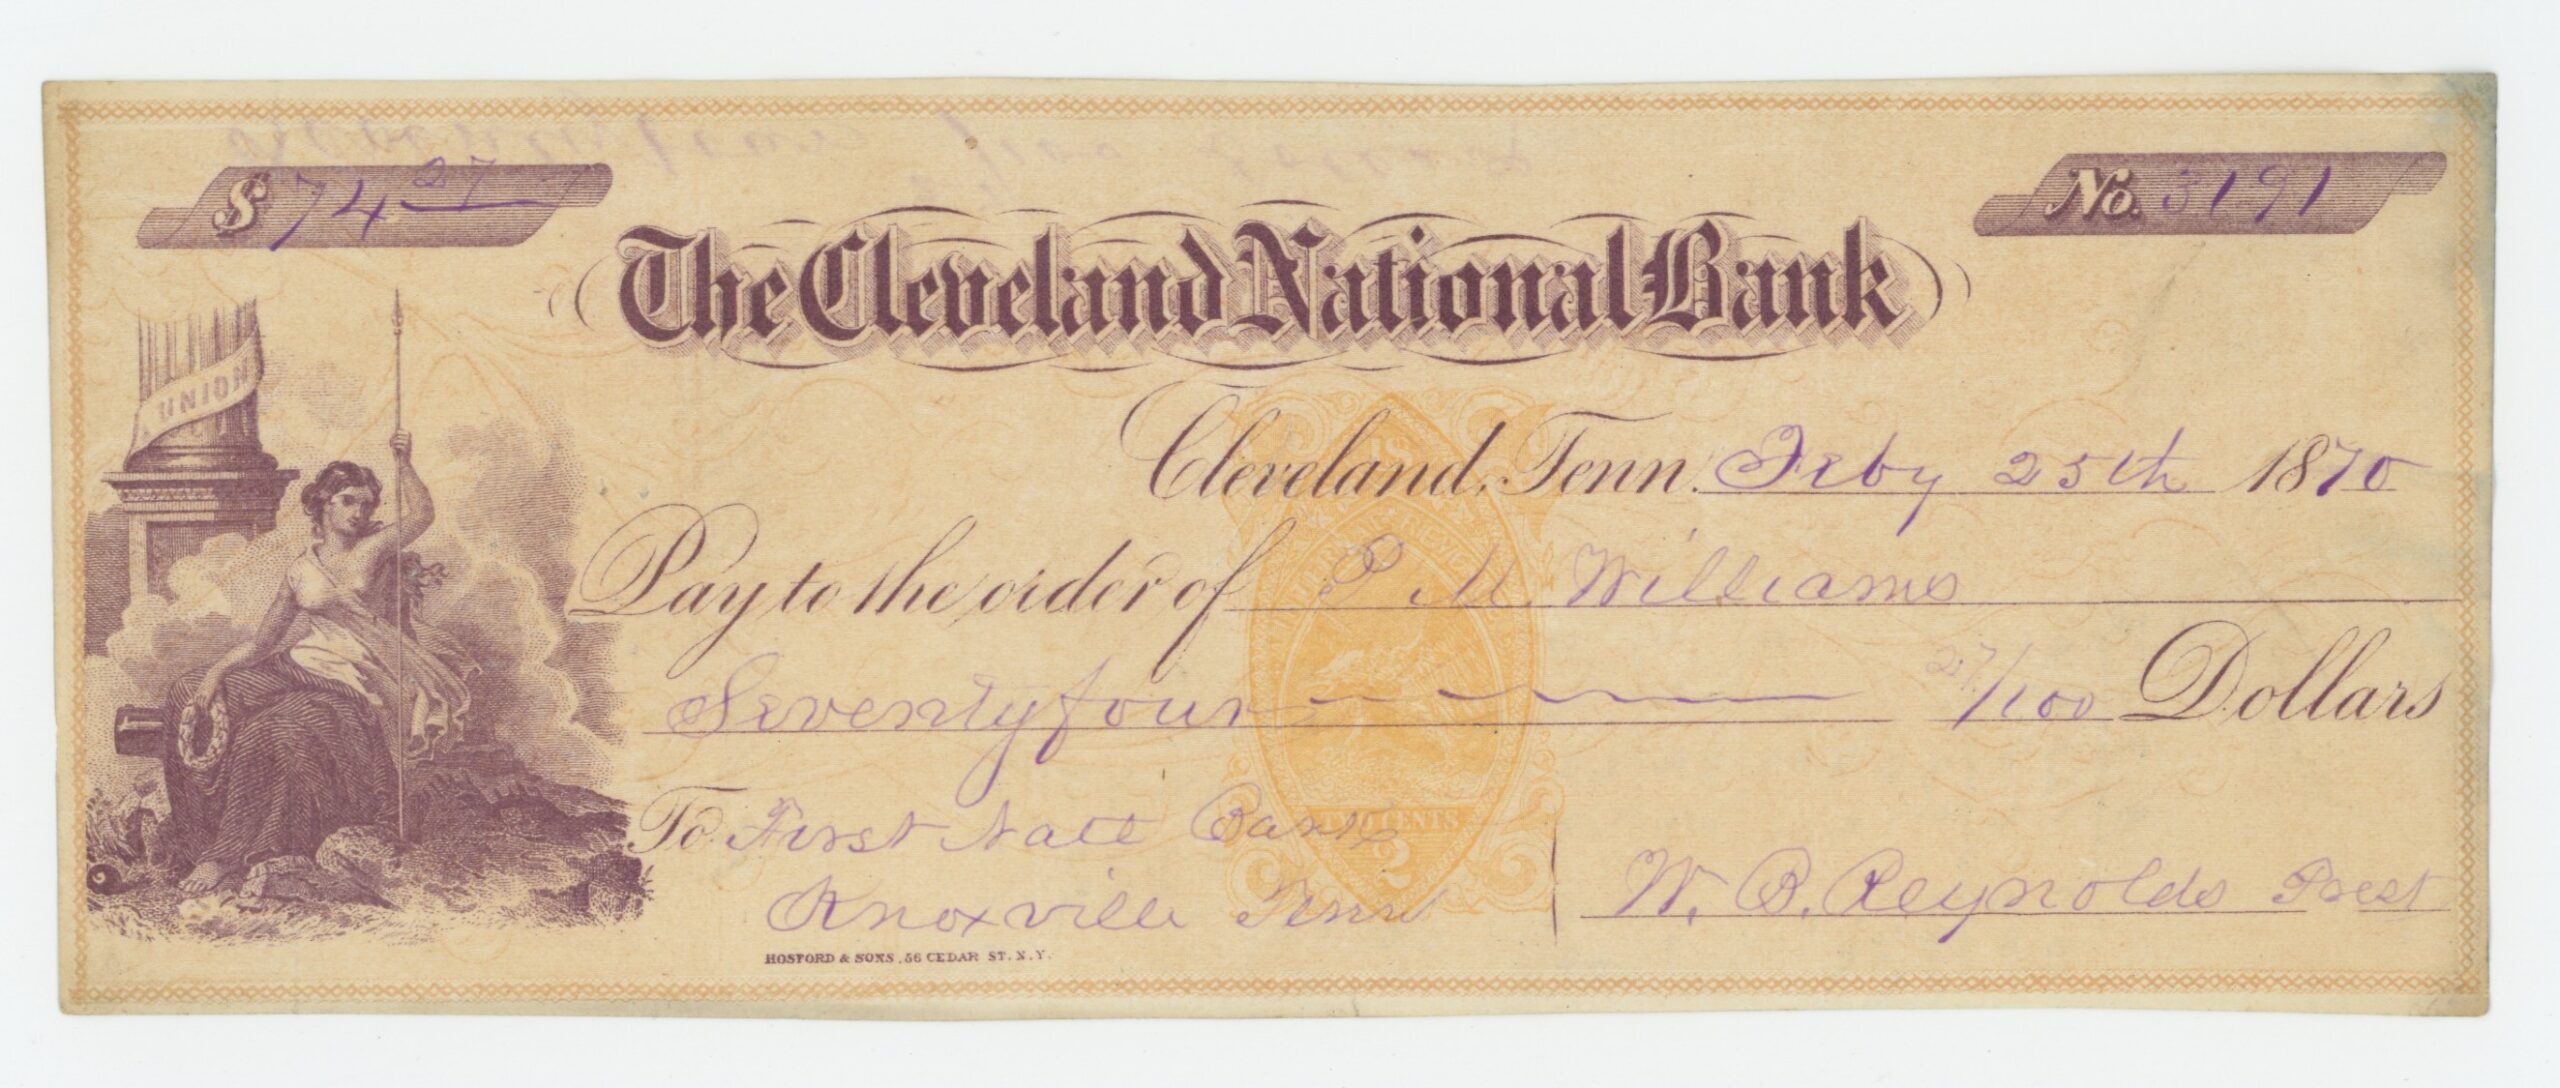 $ 74 27
No. 3191
The Cleveland National Bank
UNION
Cleveland, Tenn. Feby 25th 1870
Pay to the order of P M Williams
Seventyfour 27/100 Dollars
To First Natl Bank
Knoxville Tenn
W. B. Reynolds Prest
U.S.
TWO CENTS
2
HOSFORD & SONS, 56 CEDAR ST. N.Y.